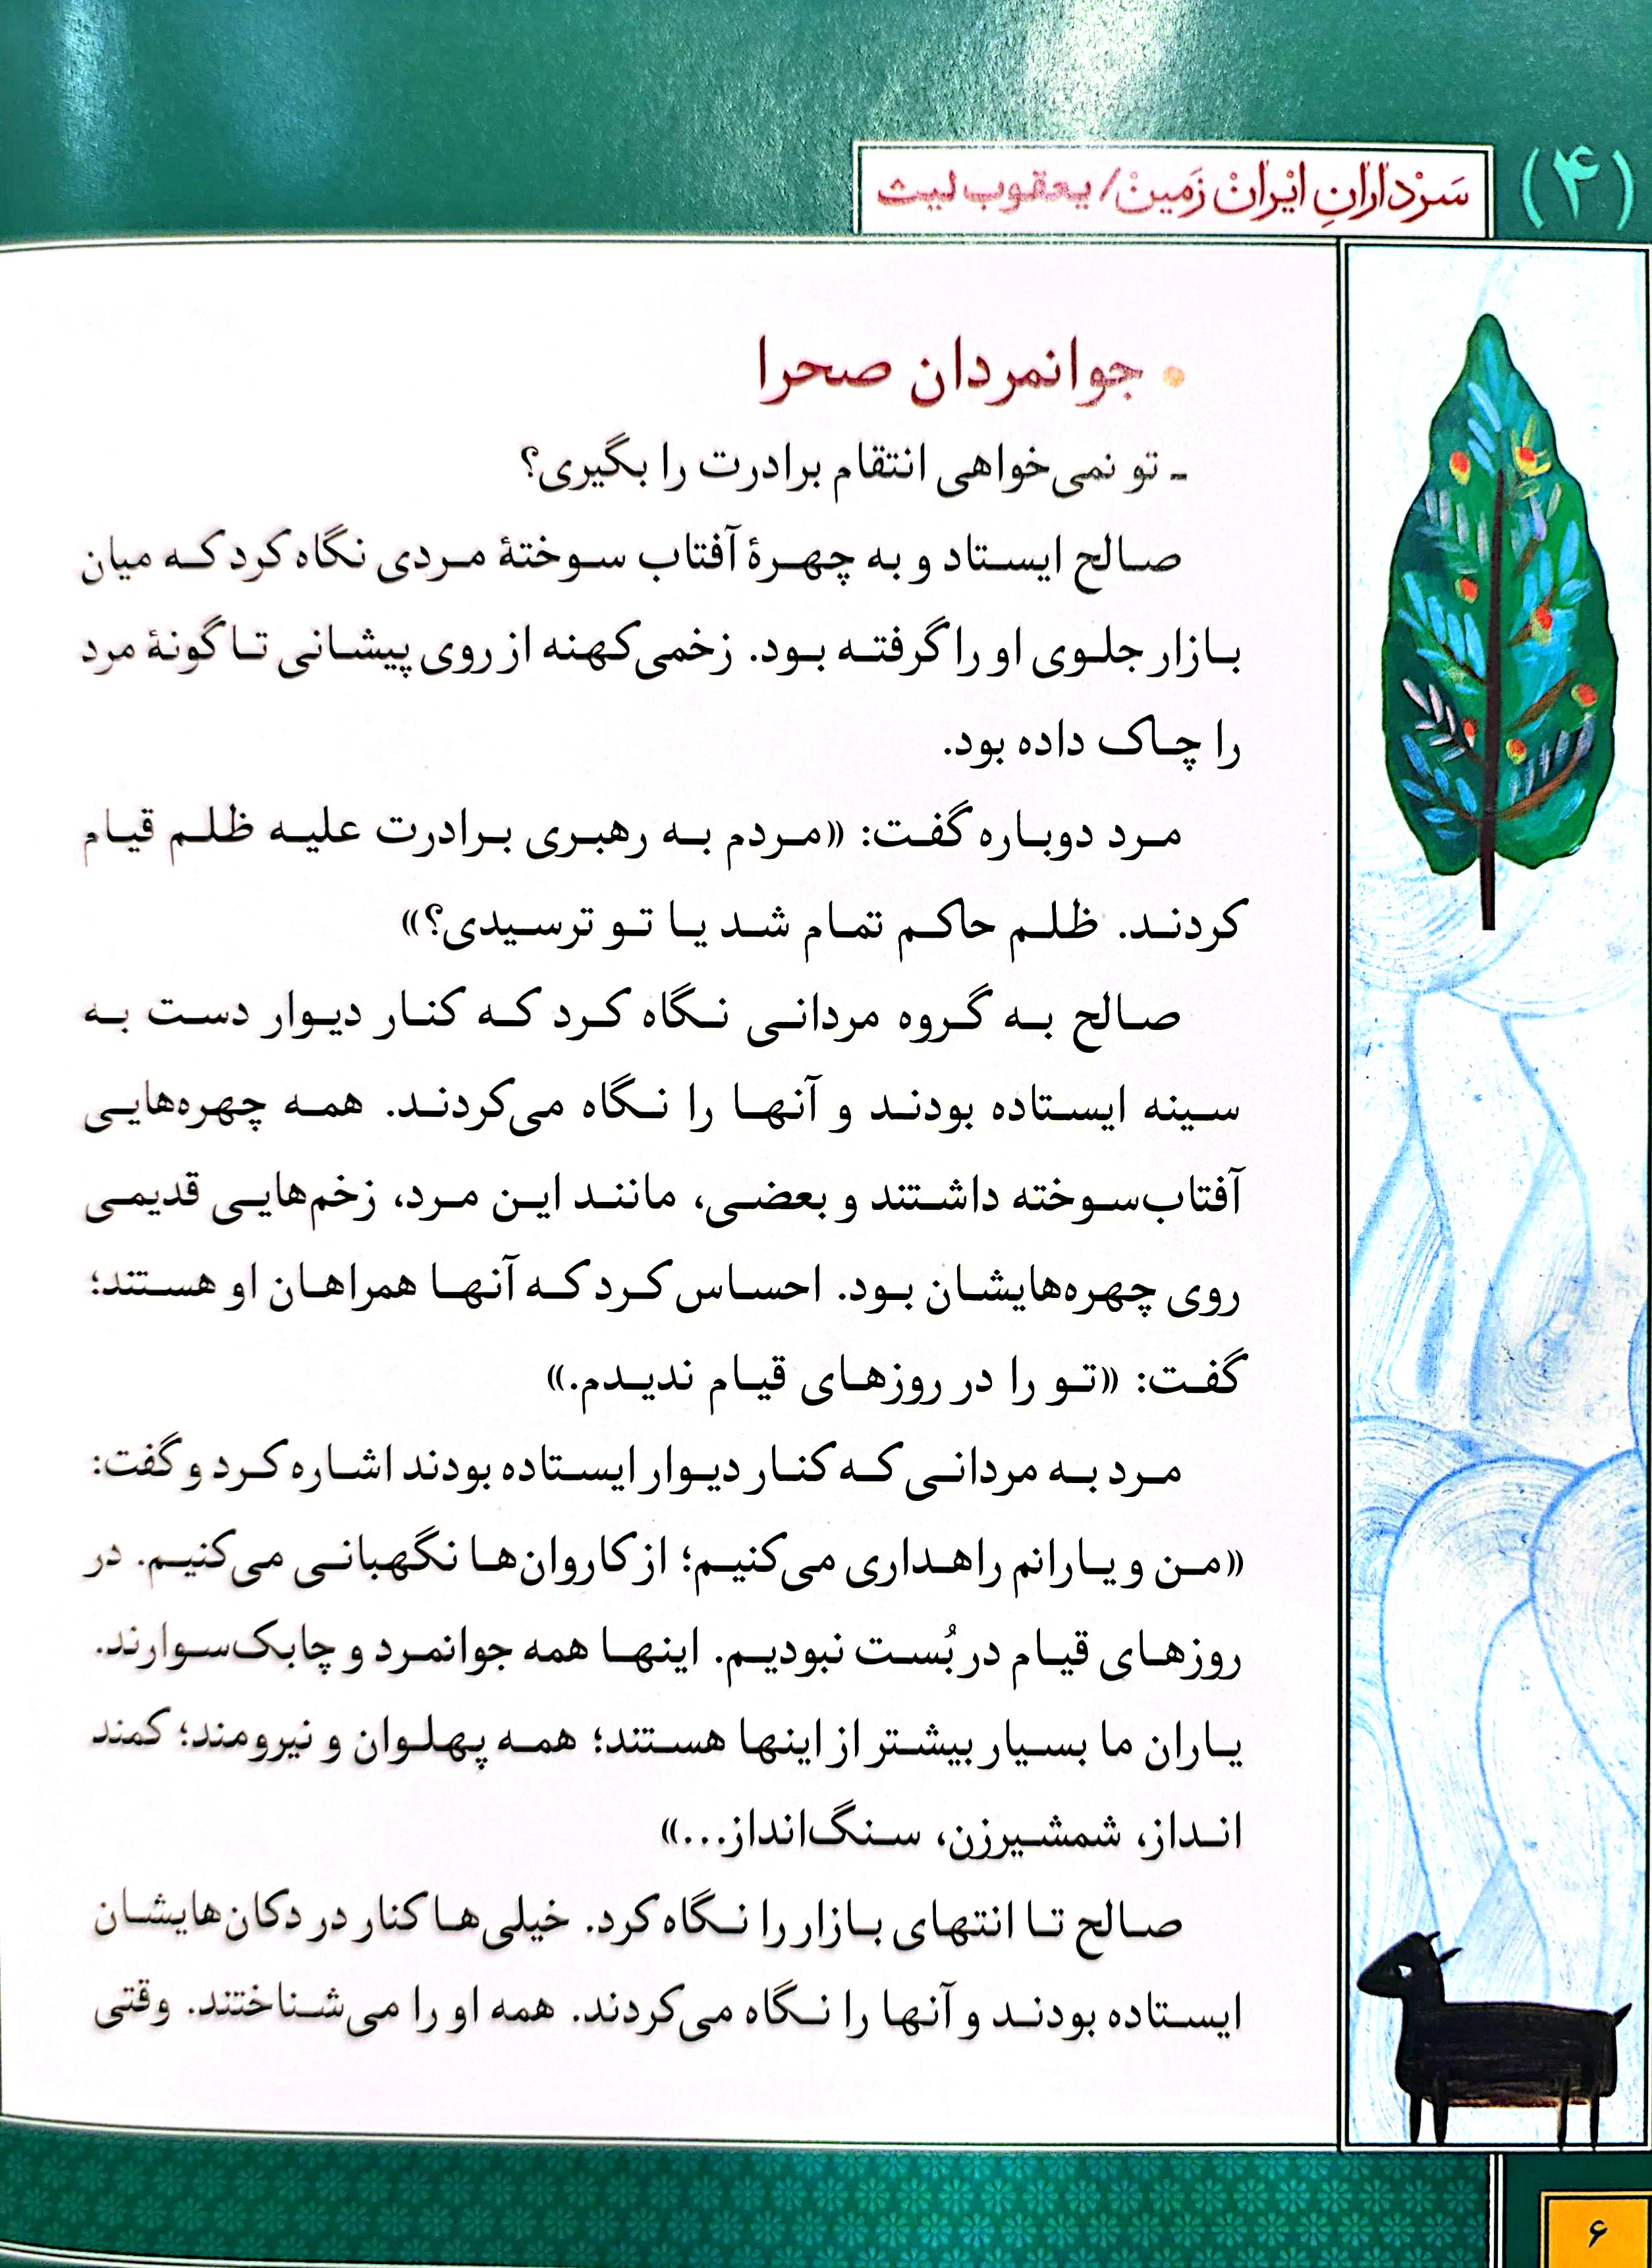 (۴)
سَرْدارانِ ایْرانْ زَمینْ/ یعقوب لیث
• جوانمردان صحرا
ـ تو نمی‌خواهی انتقام برادرت را بگیری؟
صالح ایستاد و به چهرهٔ آفتاب سوختهٔ مردی نگاه کرد که میان
بازار جلوی او را گرفته بود. زخمی کهنه از روی پیشانی تا گونهٔ مرد
را چاک داده بود.
مرد دوباره گفت: «مردم به رهبری برادرت علیه ظلم قیام
کردند. ظلم حاکم تمام شد یا تو ترسیدی؟»
صالح به گروه مردانی نگاه کرد که کنار دیوار دست به
سینه ایستاده بودند و آنها را نگاه می‌کردند. همه چهره‌هایی
آفتاب‌سوخته داشتند و بعضی، مانند این مرد، زخم‌هایی قدیمی
روی چهره‌هایشان بود. احساس کرد که آنها همراهان او هستند؛
گفت: «تو را در روزهای قیام ندیدم.»
مرد به مردانی که کنار دیوار ایستاده بودند اشاره کرد و گفت:
«من و یارانم راهداری می‌کنیم؛ از کاروان‌ها نگهبانی می‌کنیم. در
روزهای قیام در بُست نبودیم. اینها همه جوانمرد و چابک‌سوارند.
یاران ما بسیار بیشتر از اینها هستند؛ همه پهلوان و نیرومند؛ کمند
انداز، شمشیرزن، سنگ‌انداز...»
صالح تا انتهای بازار را نگاه کرد. خیلی‌ها کنار در دکان‌هایشان
ایستاده بودند و آنها را نگاه می‌کردند. همه او را می‌شناختند. وقتی
۶